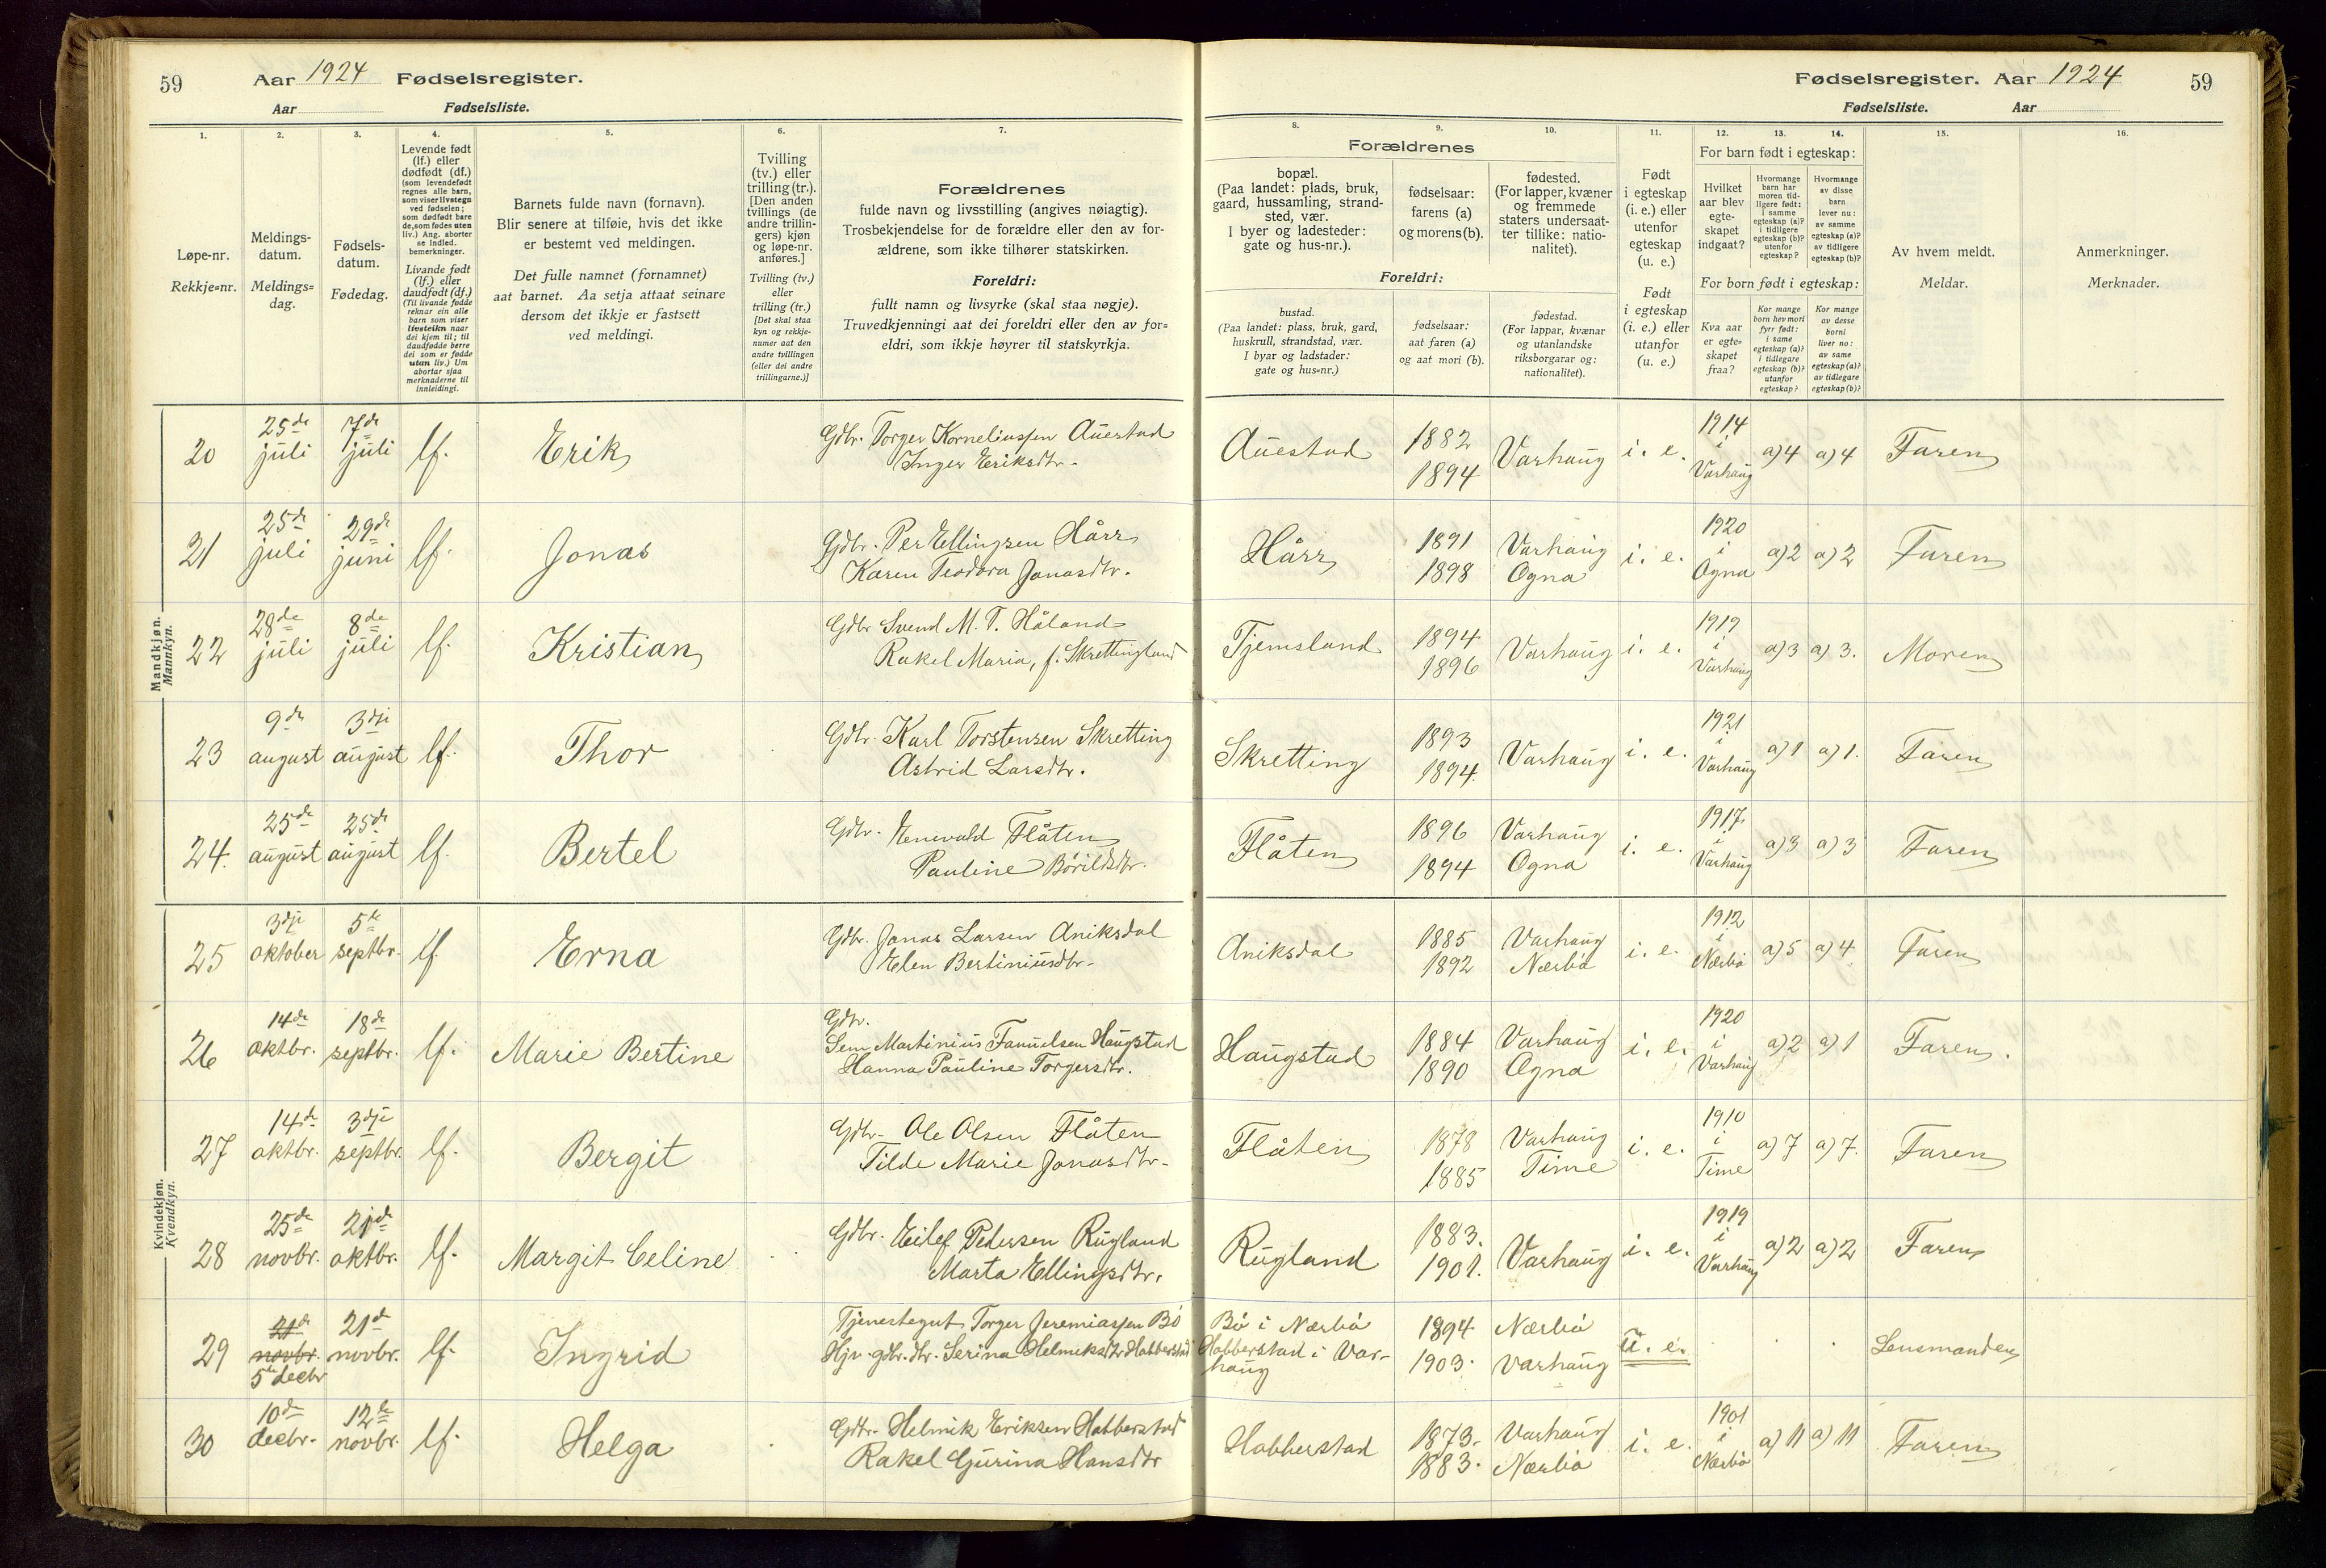 59 Aar 1924 Fødselsregister.
Aar Fødselsliste.
Fødselsregister. Aar 1924 59
Fødselsliste. Aar
1. 2. 3. 4. 5. 6. 7.
Løpe-nr.
Rekkje-nr.
Meldings-
datum.
Meldings-
dag.
Fødsels-
datum.
Fødedag.
Levende født
(lf.) eller
dødfødt (df.)
(som levendefødt
regnes alle barn,
som viser livstegn
ved fødselen;
som dødfødt bare
de, som fødes uten
liv.) Ang. aborter
se indled.
bemerkninger.
Livande født
(lf.) eller
daudfødt (df.)
(Til livande fødde
reknar ein alle
barn som viser
livsteikn naar
dei kjem til; til
daudfødde berre
dei som er fødde
utan liv.) Um
abortar sjaa
merknaderne til
innleidingi.
Barnets fulde navn (fornavn).
Blir senere at tilføie, hvis det ikke
er bestemt ved meldingen.
Det fulle namnet (fornamnet)
aat barnet. Aa setja attaat seinare
dersom det ikkje er fastsett
ved meldingi.
Tvilling
(tv.) eller
trilling (tr.).
[Den anden
tvillings (de
andre trillin-
gers) kjøn
og løpe-nr.
anføres.]
Tvilling (tv.)
eller
trilling (tr.)
[Det skal staa
kyn og rekkje-
numer aat den
andre tvillingen
(eller dei andre
trillingarne.)]
Forældrenes
fulde navn og livsstilling (angives nøiagtig).
Trosbekjendelse for de forældre eller den av for-
ældrene, som ikke tilhører statskirken.
Foreldri:
fullt namn og livsyrke (skal staa nøgje).
Truvedkjenningi aat dei foreldri eller den av for-
eldri, som ikkje høyrer til statskyrkja.
8. 9. 10. 11. 12. 13. 14. 15. 16.
Forældrenes
bopæl.
(Paa landet: plads, bruk,
gaard, hussamling, strand-
sted, vær.
I byer og ladesteder:
gate og hus-nr.).
fødselsaar:
farens (a)
og morens (b).
fødested.
(For lapper, kvæner
og fremmede
staters undersaat-
ter tillike: natio-
nalitet).
Foreldri:
bustad.
(Paa landet: plass, bruk, gard,
huskrull, strandstad, vær.
I byar og ladstader:
gate og hus-nr.)
fødselsaar:
aat faren (a)
og aat mori (b).
fødestad.
(For lappar, kvænar
og utanlandske
riksborgarar og:
nationalitet).
Født
i egteskap
(i. e.) eller
utenfor
egteskap
(u. e.)
Født
i egteskap
(i. e.) eller
utanfor
(u. e.)
For barn født i egteskap:
Hvilket
aar blev
egte-
skapet
indgaat?
Hvormange
barn har
moren tid-
ligere født:
i samme
egteskap (a)?
i tidligere
egteskap (b)?
utenfor
egteskap?
Hvormange
av disse
barn
lever nu:
av samme
egteskap (a)?
av tidligere
egteskap (b)?
For born født i egteskap:
Kva aar
er egte-
skapet
fraa?
Kor mange
born hev mori
fyrr født:
i same
egteskap (a)?
i tidlegare
egteskap (b)?
utanfor
egteskap?
Kor mange
av desse
borni
liver no:
av same
egteskap (a)?
av tidlegare
egteskap (b)?
Av hvem meldt.
Meldar.
Anmerkninger.
Merknader.
Mandkjøn.
Mannkyn.
20 25de juli 7de juli lf. Erik Gdbr. Torger Korneliussen Auestad
Inger Eriksdtr. Auestad 1882 1894 Varhaug i. e. 1914 i Varhaug a) 4 a) 4 Faren
21 25de juli 29de juni lf. Jonas Gdbr. Per Ellingsen Hårr
Karen Teodora Jonasdtr. Hårr 1891 1898 Varhaug Ogna i. e. 1920 i Ogna a) 2 a) 2 Faren
22 28de juli 8de juli lf. Kristian Gdbr. Svend M. T. Håland
Rakel Maria, f. Skrettingland Tjemsland 1894 1896 Varhaug i. e. 1919 i Varhaug a) 3 a) 3. Moren
23 9de august 3dje august lf. Thor Gdbr. Karl Torstensen Skretting
Astrid Larsdtr. Skretting 1893 1894. Varhaug i. e. 1921 i Varhaug a) 1 a) 1. Faren
24. 25de august 25de august lf. Bertel Gdbr. Enevald Flåten
Pauline Børildsdtr. Flåten 1896 1894 Varhaug Ogna i. e. 1917. i Varhaug a) 3 a) 3 Faren
Kvindekjøn.
Kvendkyn.
25 3dje oktober 5te septbr. lf. Erna Gdbr. Jonas Larsen Aniksdal
Elen Bertiniusdtr. Aniksdal 1885 1892 Varhaug Nærbø i. e. 1912 i Nærbø a) 5 a) 4. Faren
26 14de oktbr. 18de septbr. lf. Marie Bertine Gdbr.
Sem Martinius Samuelsen Haugstad
Hanna Pauline Torgersdtr. Haugstad 1884 1890 Varhaug Ogna i. e. 1920 i Varhaug a) 2 a) 1 Faren.
27 14de oktbr. 3dje septbr. lf. Bergit Gdbr. Ole Olsen Flåten
Tilde Marie Jonasdtr. Flåten 1878 1885 Varhaug Time i. e. 1910 i Time a) 7 a) 7. Faren
28 25de novbr. 21de oktbr. lf. Margit Celine Gdbr. Eilef Pedersen Rugland
Marta Ellingsdtr. Rugland 1883. 1901. Varhaug i. e. 1919 i Varhaug a) 2 a) 2 Faren
29 21de novbr. 5te decbr 21de novbr. lf. Ingrid Tjenestegut Torger Jeremiassen Bø
Hjv. gdbr. dtr. Serina Helmiksdtr Hobberstad Bø i Nærbø
Hobberstad i Var-
haug 1894. 1903. Nærbø Varhaug u. e. Lensmanden
30 10de decbr. 12te novbr. lf. Helga Gdbr. Helmik Eriksen Hobberstad
Rakel Gurina Hansdtr Hobberstad 1873. 1883. Varhaug Nærbø i. e. 1901 i Nærbø a) 11 a) 11 Faren